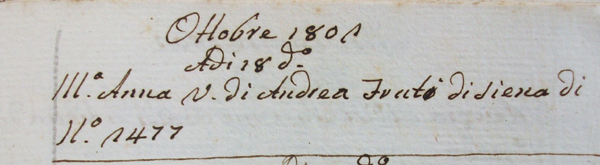 Ottobre 1801
Adi 18 dº
Mª Anna V. di Andrea Fruti di Siena di
Nº 1477